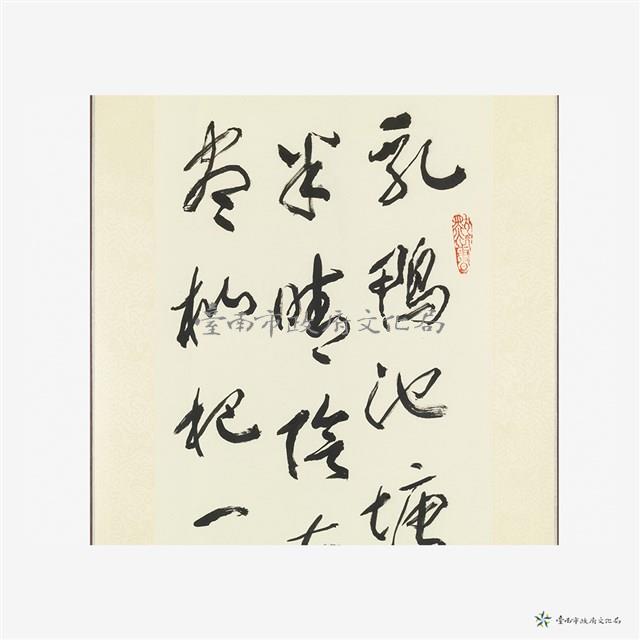 乳鴨池塘
半晴陰
盡枇杷一
臺南市政府文化局
臺南市政府文化局